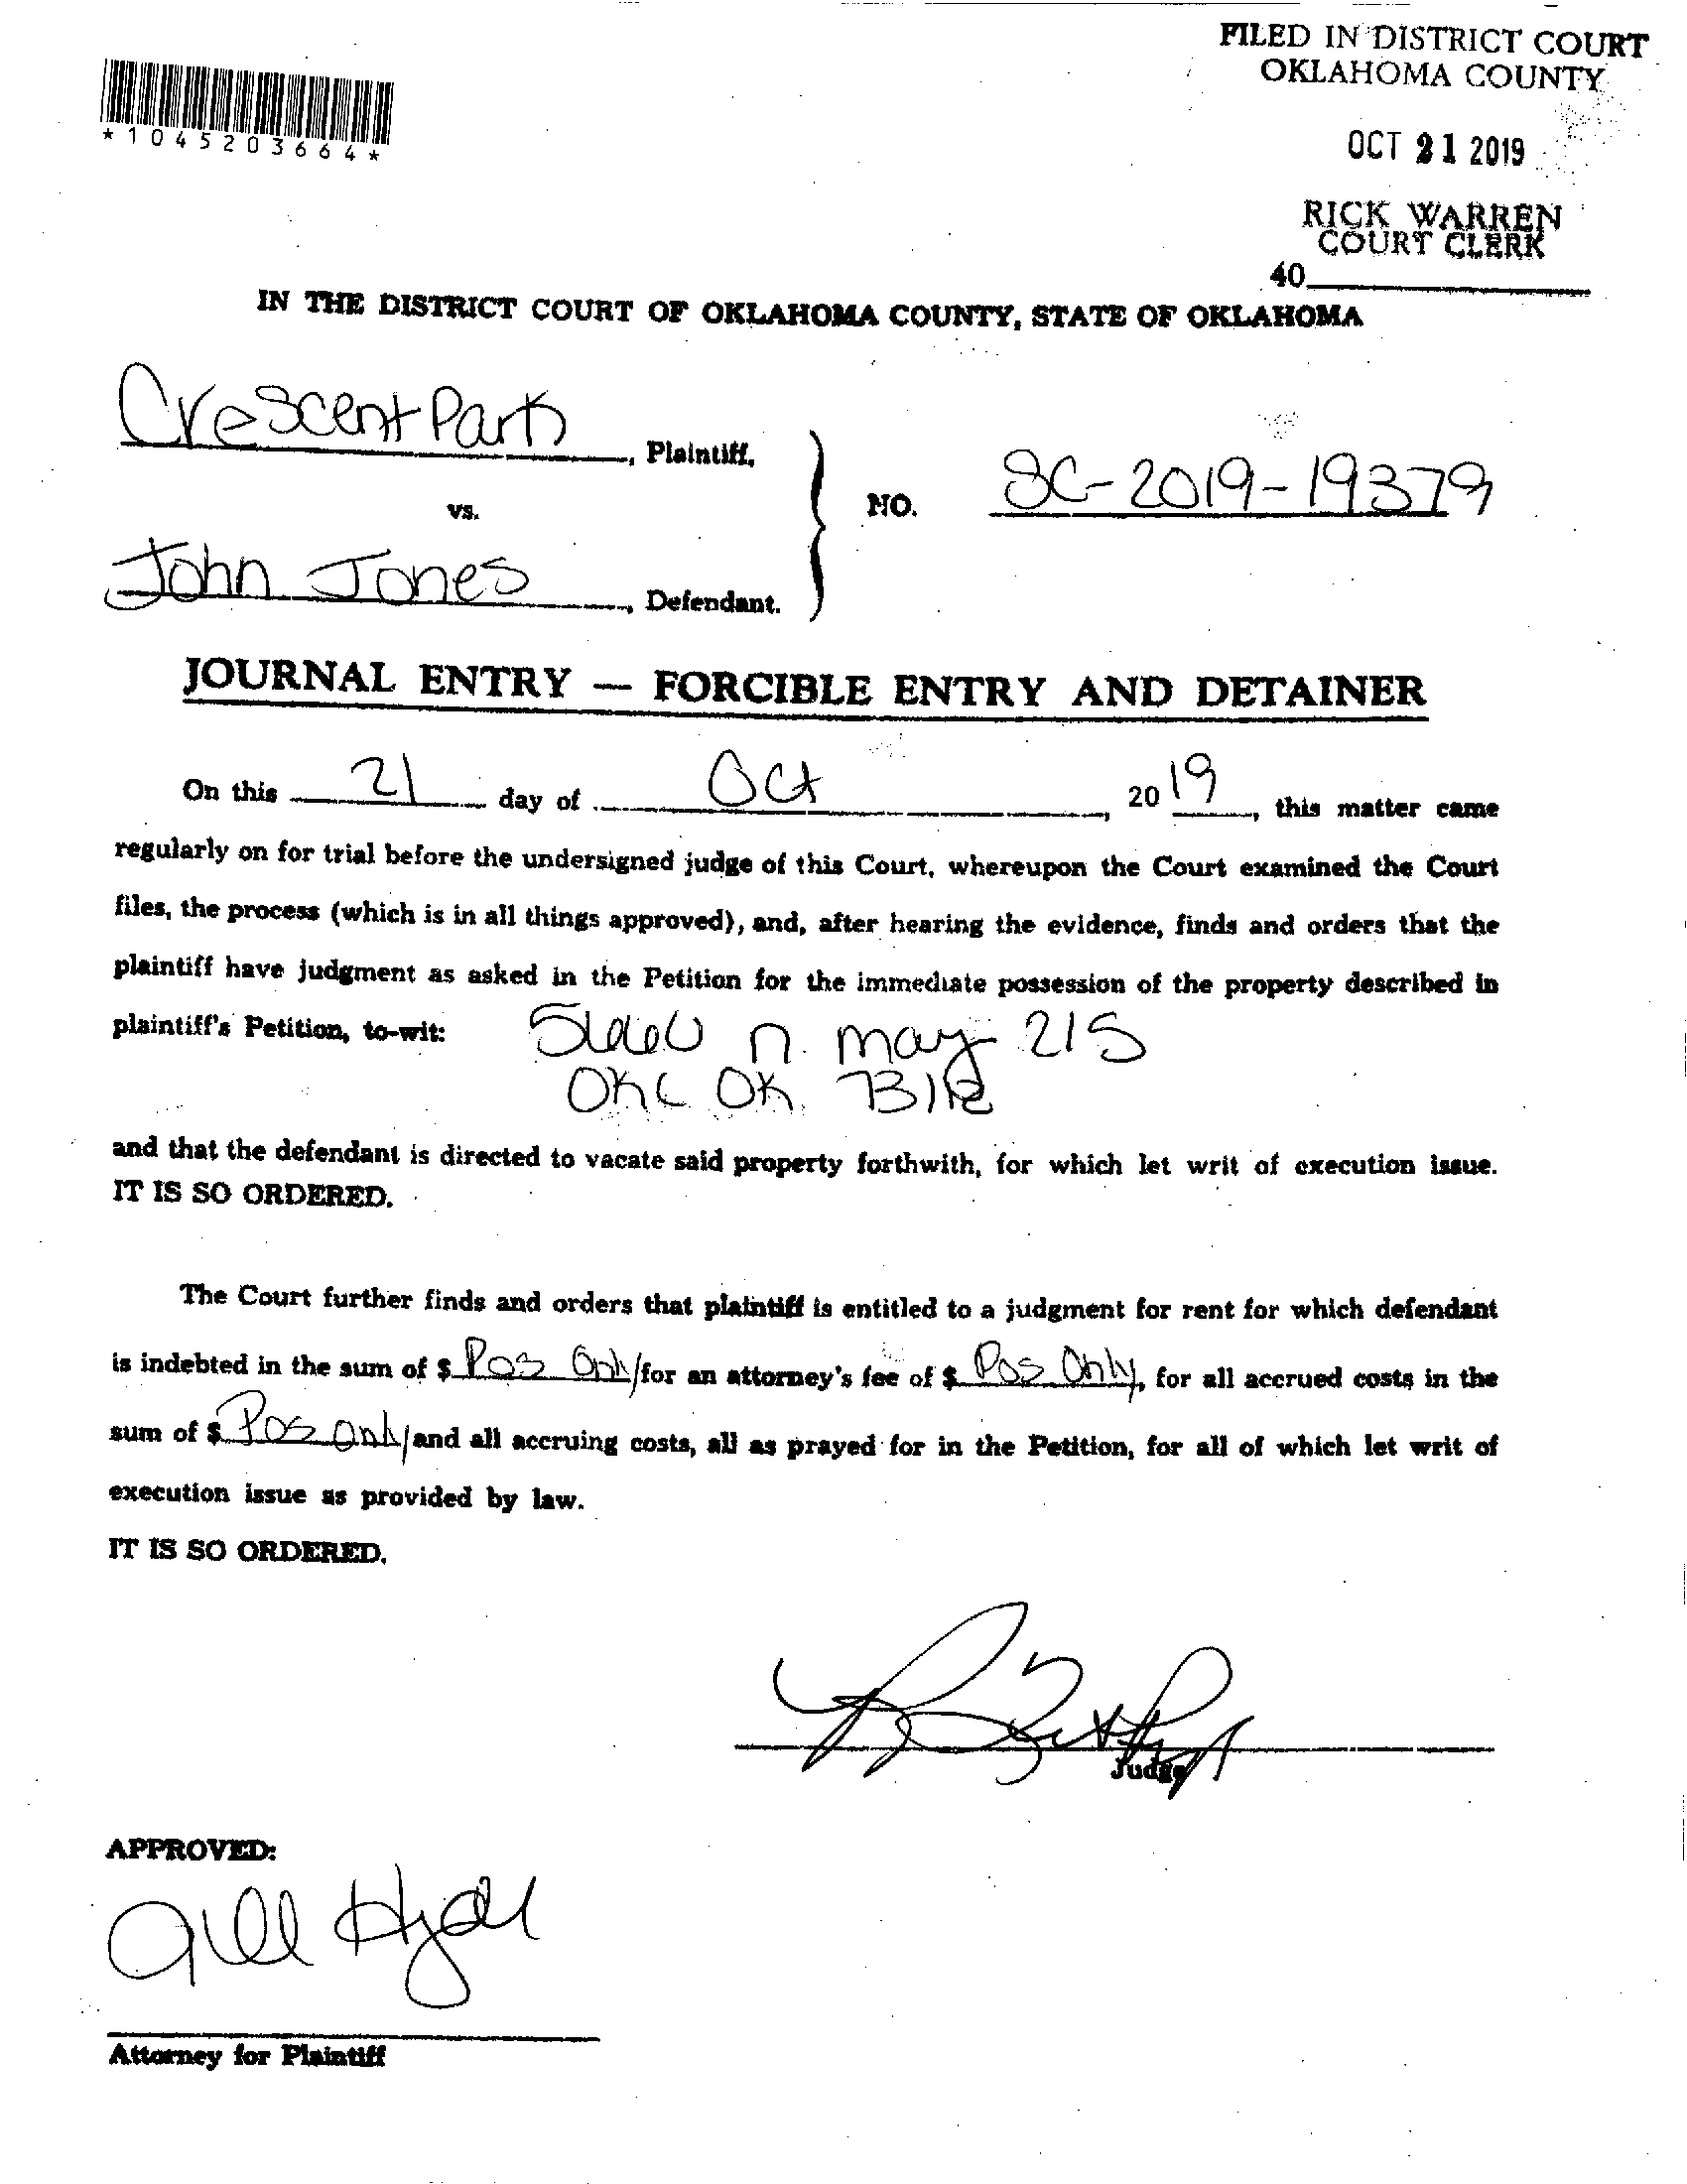 FILED IN DISTRICT COURT
OKLAHOMA COUNTY
*1045203664*
OCT 21 2019
RICK WARREN
COURT CLERK
40
IN THE DISTRICT COURT OF OKLAHOMA COUNTY, STATE OF OKLAHOMA
Crescent Park, Plaintiff,
vs.
NO. SC-2019-19379
John Jones, Defendant.
JOURNAL ENTRY — FORCIBLE ENTRY AND DETAINER
On this 21 day of Oct, 2019, this matter came
regularly on for trial before the undersigned judge of this Court, whereupon the Court examined the Court
files, the process (which is in all things approved), and, after hearing the evidence, finds and orders that the
plaintiff have judgment as asked in the Petition for the immediate possession of the property described in
plaintiff's Petition, to-wit: n. may 215
OKC OK.
and that the defendant is directed to vacate said property forthwith, for which let writ of execution issue.
IT IS SO ORDERED.
The Court further finds and orders that plaintiff is entitled to a judgment for rent for which defendant
is indebted in the sum of $ Pos Only for an attorney's fee of $ Pos Only, for all accrued costs in the
sum of $ Pos Only and all accruing costs, all as prayed for in the Petition, for all of which let writ of
execution issue as provided by law.
IT IS SO ORDERED.
Judge
APPROVED:
Attorney for Plaintiff